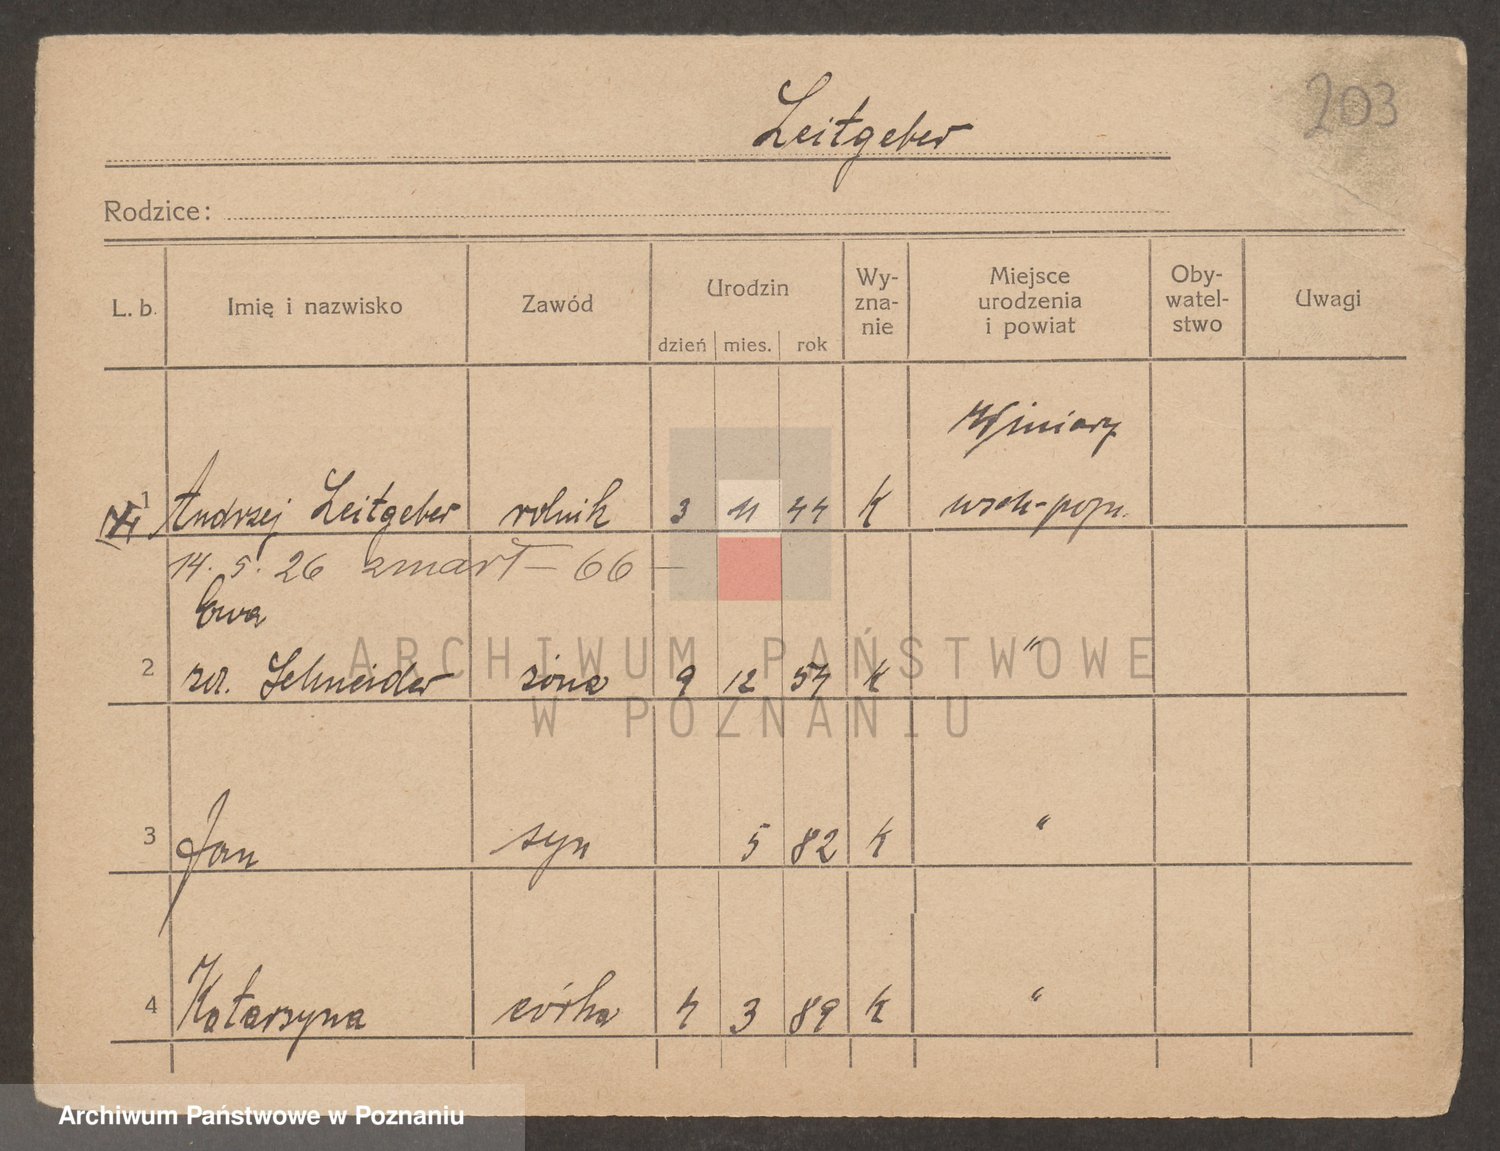 203
Leitgeber
Rodzice:
L. b. Imię i nazwisko Zawód Urodzin dzień mies. rok Wy-zna-nie Miejsce urodzenia i powiat Oby-watel-stwo Uwagi
Winiary
1 Andrzej Leitgeber rolnik 3 11 44 K
14. 5. 26 zmarł – 66 –
Ewa
2 Schneider żona 9 12 54 K "
3 Jan syn 5 82 K "
4 Katarzyna córka 4 3 89 K "
ARCHIWUM PAŃSTWOWE
W POZNANIU
Archiwum Państwowe w Poznaniu